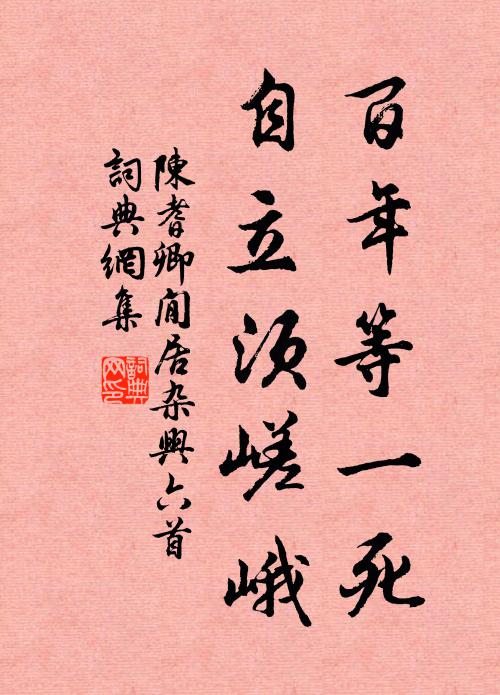 百年等一死
自立須嵯峨
陳耆卿閒居杂興六首
詞典網集
詞典网印